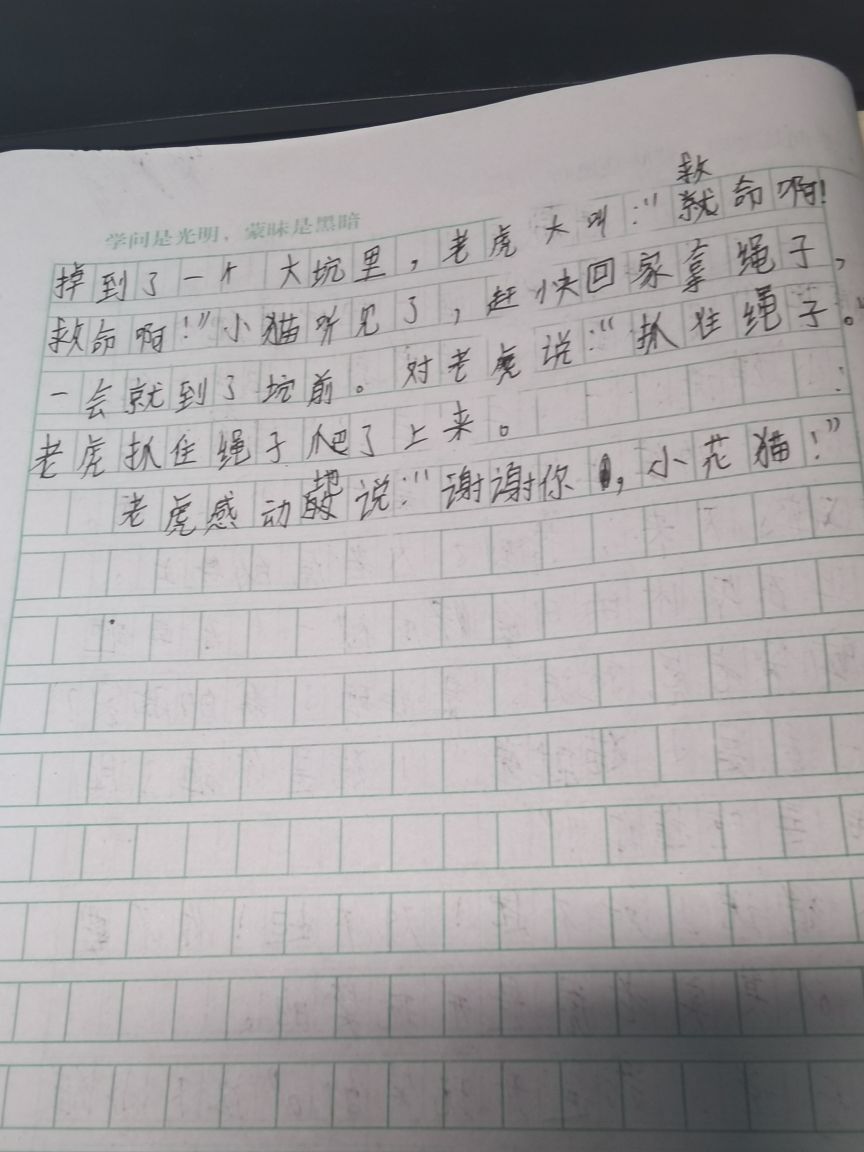 学问是光明，蒙昧是黑暗
救
掉到了一个大坑里，老虎大叫：“就命啊！
救命啊！”小猫听见了，赶快回家拿绳子，
一会就到了坑前。对老虎说：“抓住绳子。”
老虎抓住绳子爬了上来。
地
老虎感动的说：“谢谢你，小花猫！”